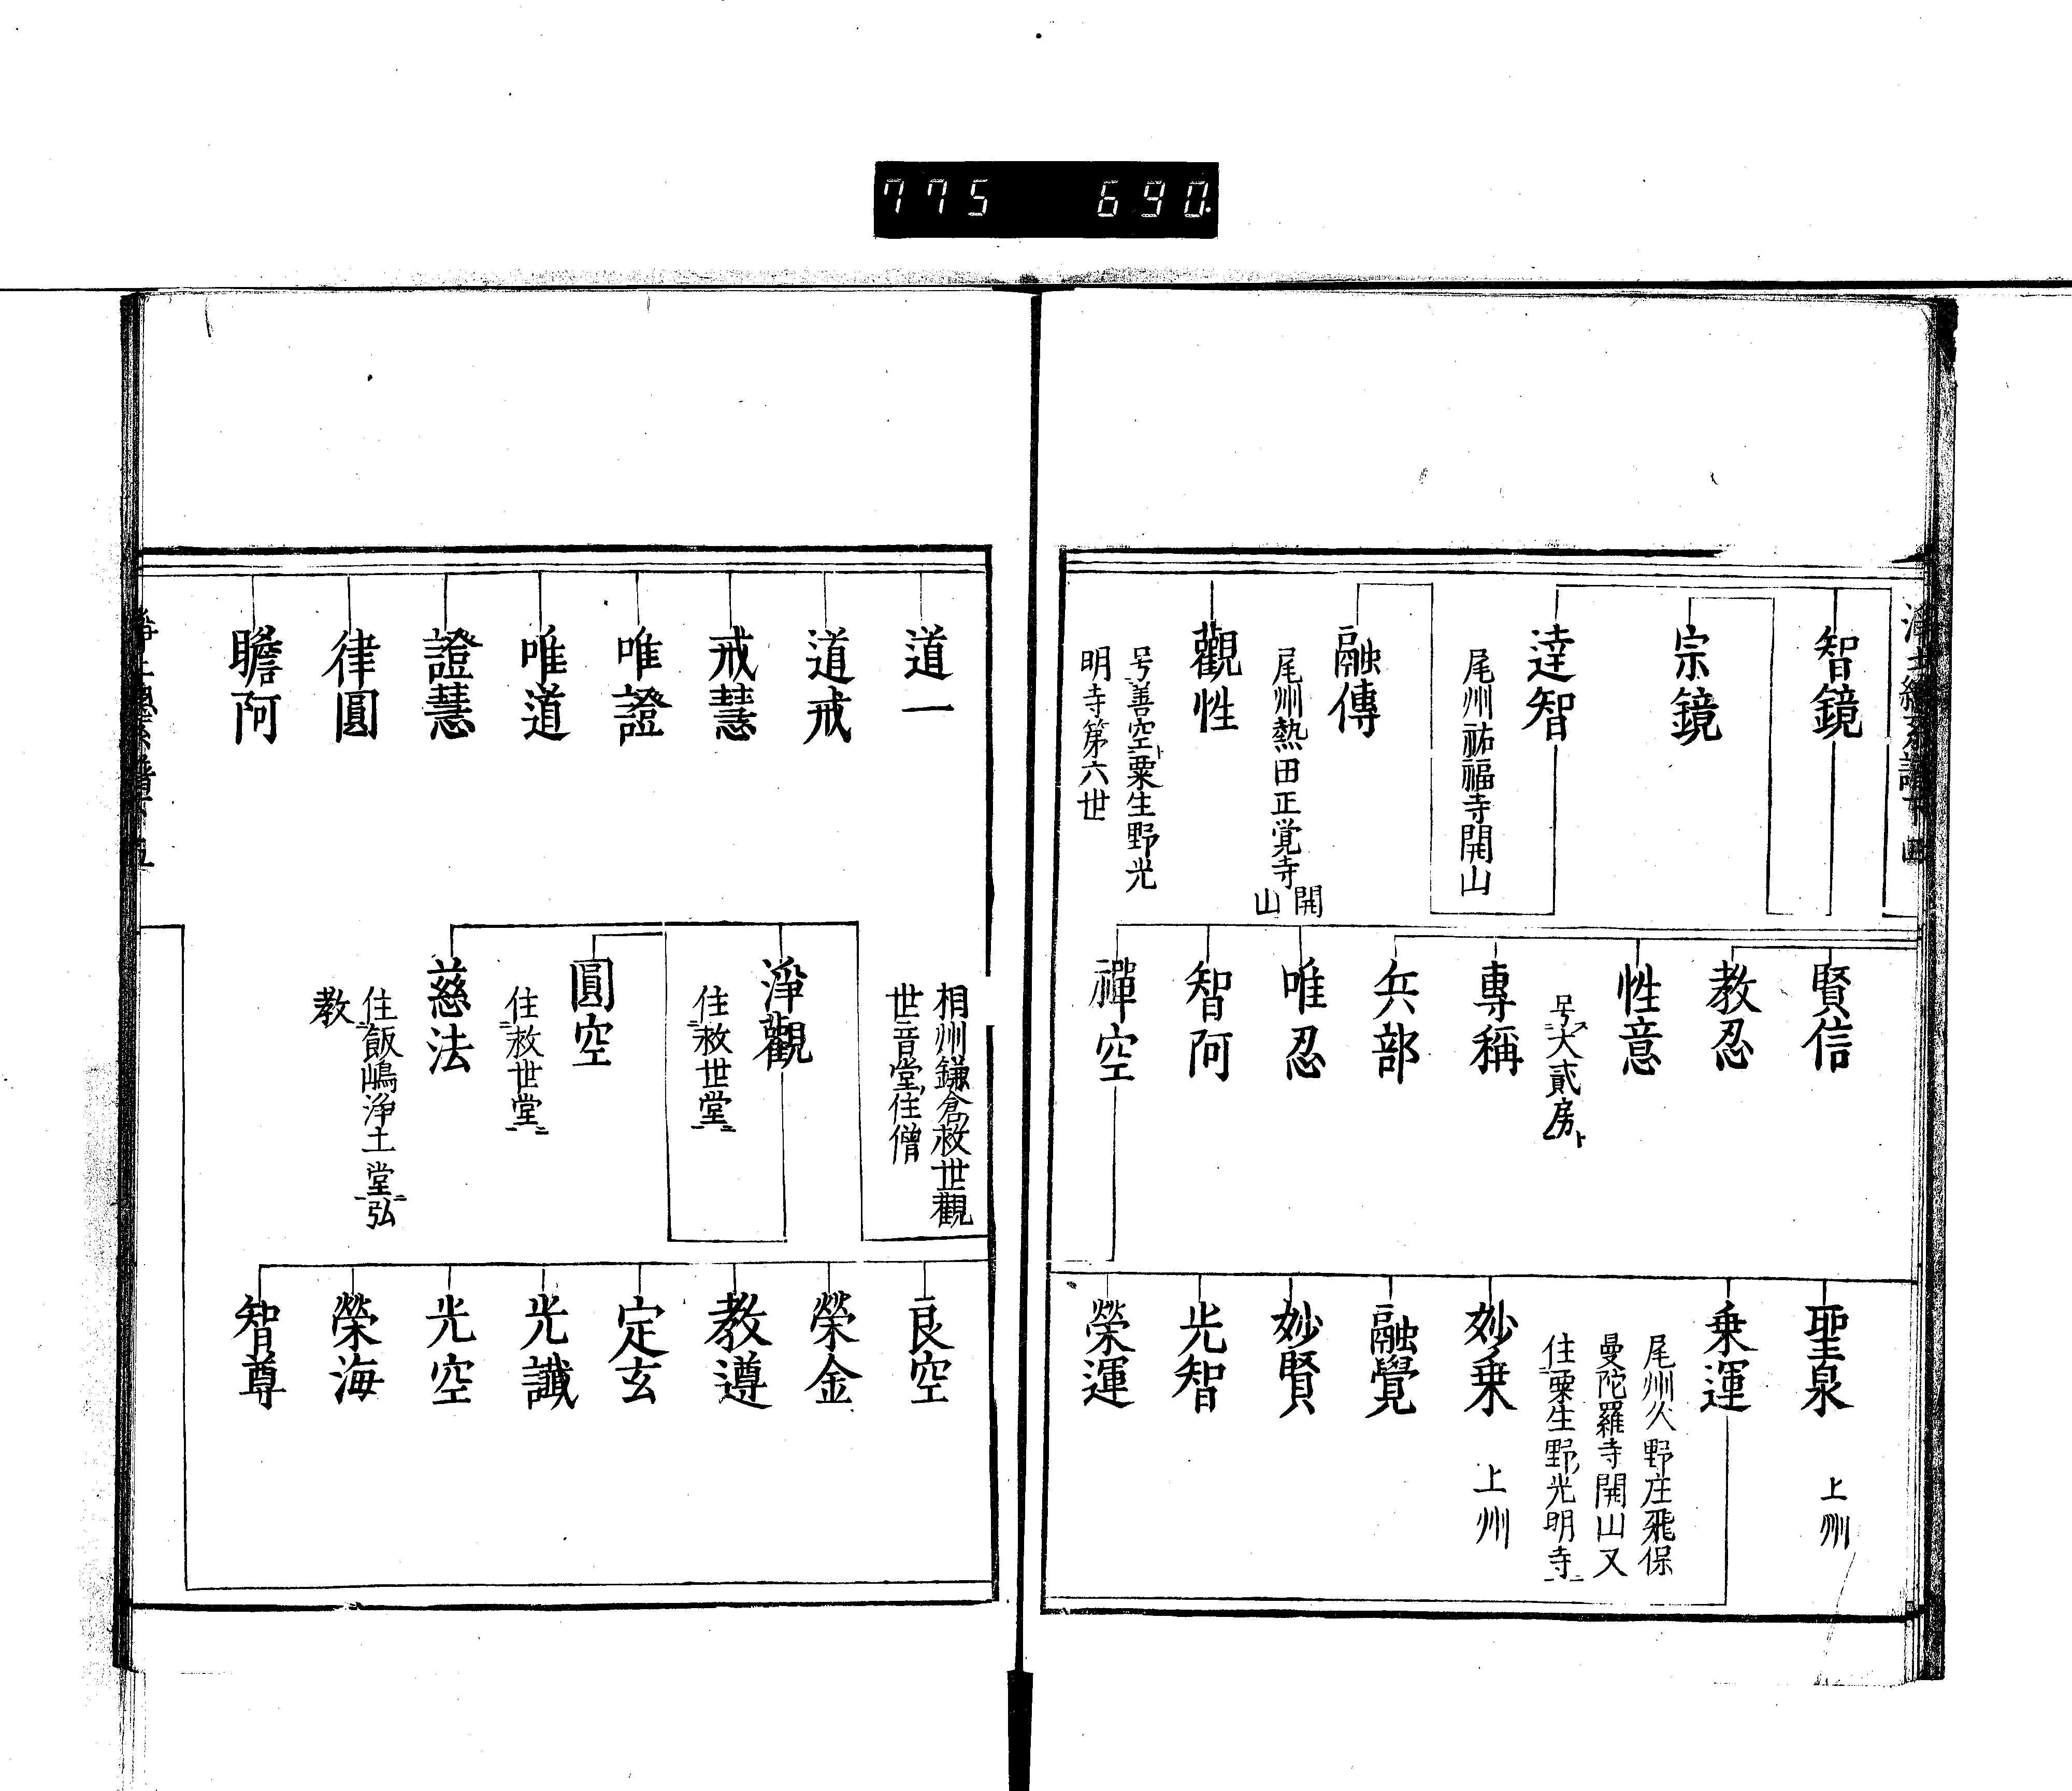 775 690.
智鏡
宗鏡
達智
尾州祐福寺開山
融傳
尾州熱田正覚寺開山
觀性
号善空粟生野光
明寺第六世
賢信
教忍
性意
号大貳房
專稱
兵部
唯忍
智阿
禪空
聖泉 上州
乗運
尾州久野庄飛保
曼陀羅寺開山又
住粟生野光明寺
妙乗 上州
融覺
妙賢
光智
榮運
道一
道戒
戒慧
唯證
唯道
證慧
律圓
瞻阿
相州鎌倉救世觀
世音堂住僧
淨觀
住救世堂
圓空
住救世堂
慈法
住飯嶋浄土堂弘
教
良空
榮金
教遵
定玄
光識
光空
榮海
智尊